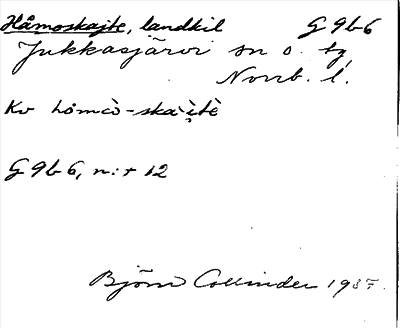 Håmoskajte, landkil G 9b6
Jukkasjärvi sn o. tg,
Norrb. l.
Kv håmcò-ska·i̯tè
G 9b 6, n:r 12
Björn Collinder 1937.